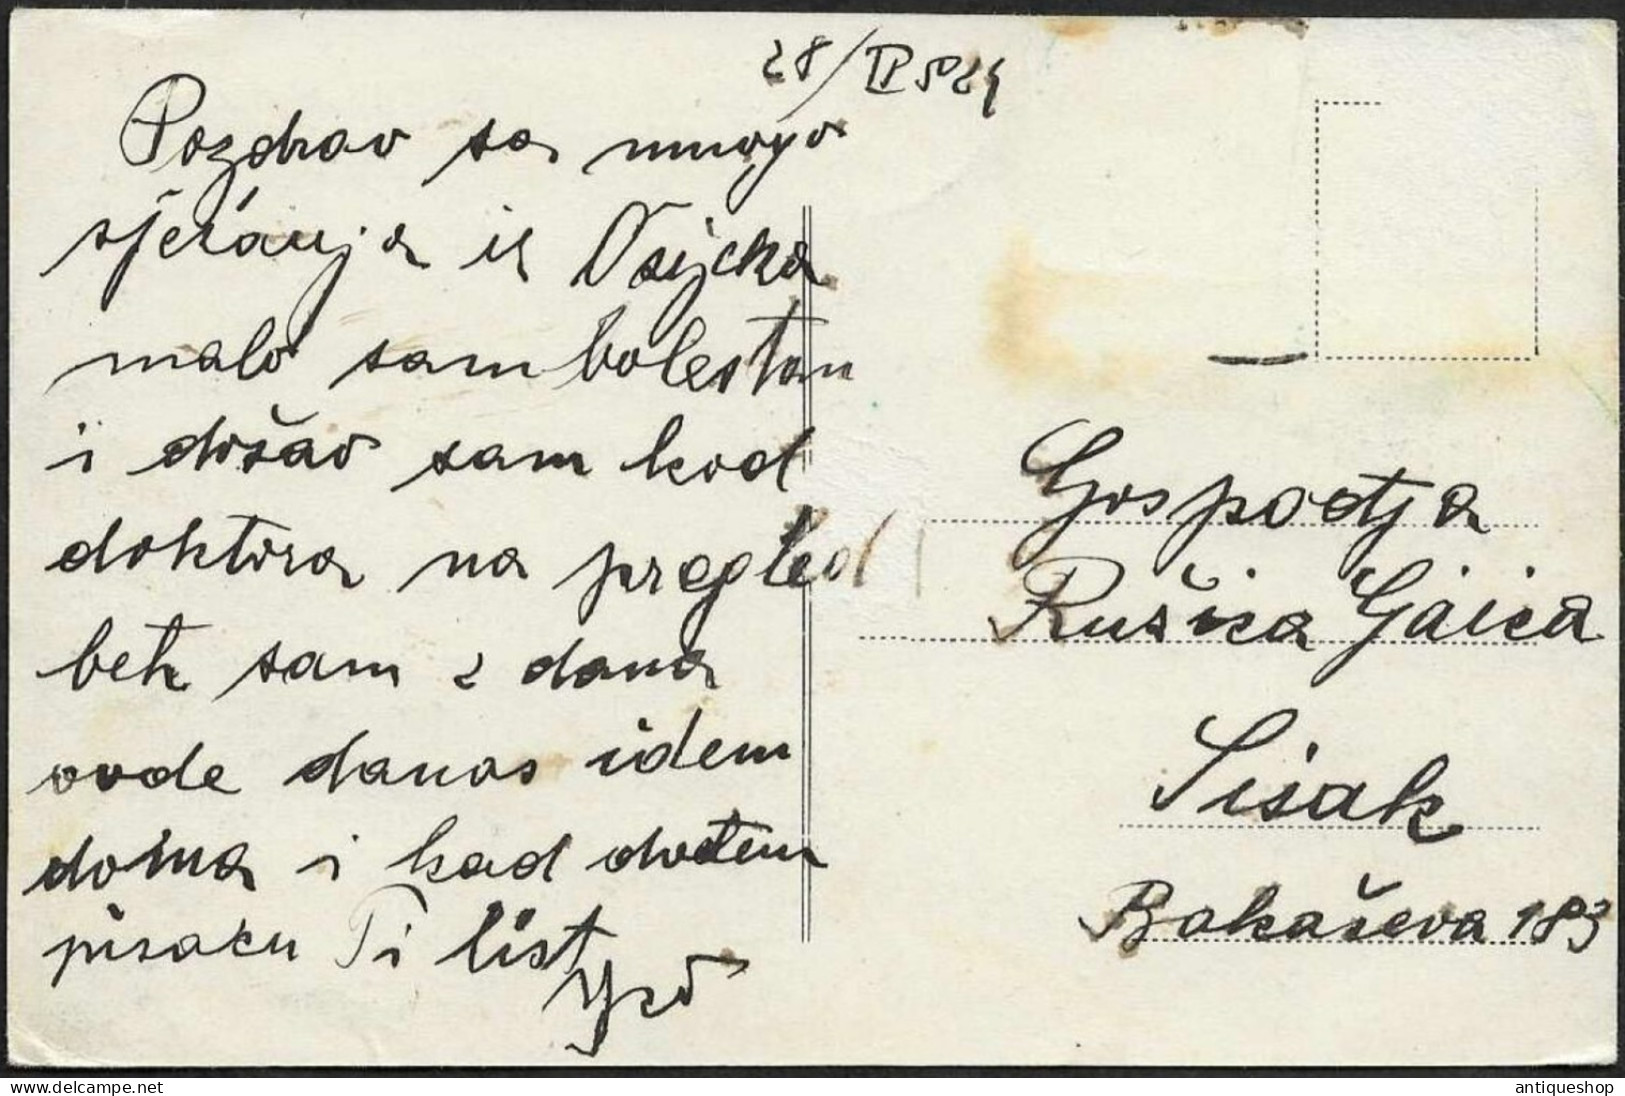 Pozdrav sa mnogo
sječanja iz Osijeka
malo sam bolestan
i došao sam kod
doktora na pregled
beh sam 2 dana
ovde danas idem
doma i kad dođem
pisaću Ti list
Gospodja
Ružica Gaica
Sisak
Bakačeva 183
antiqueshop